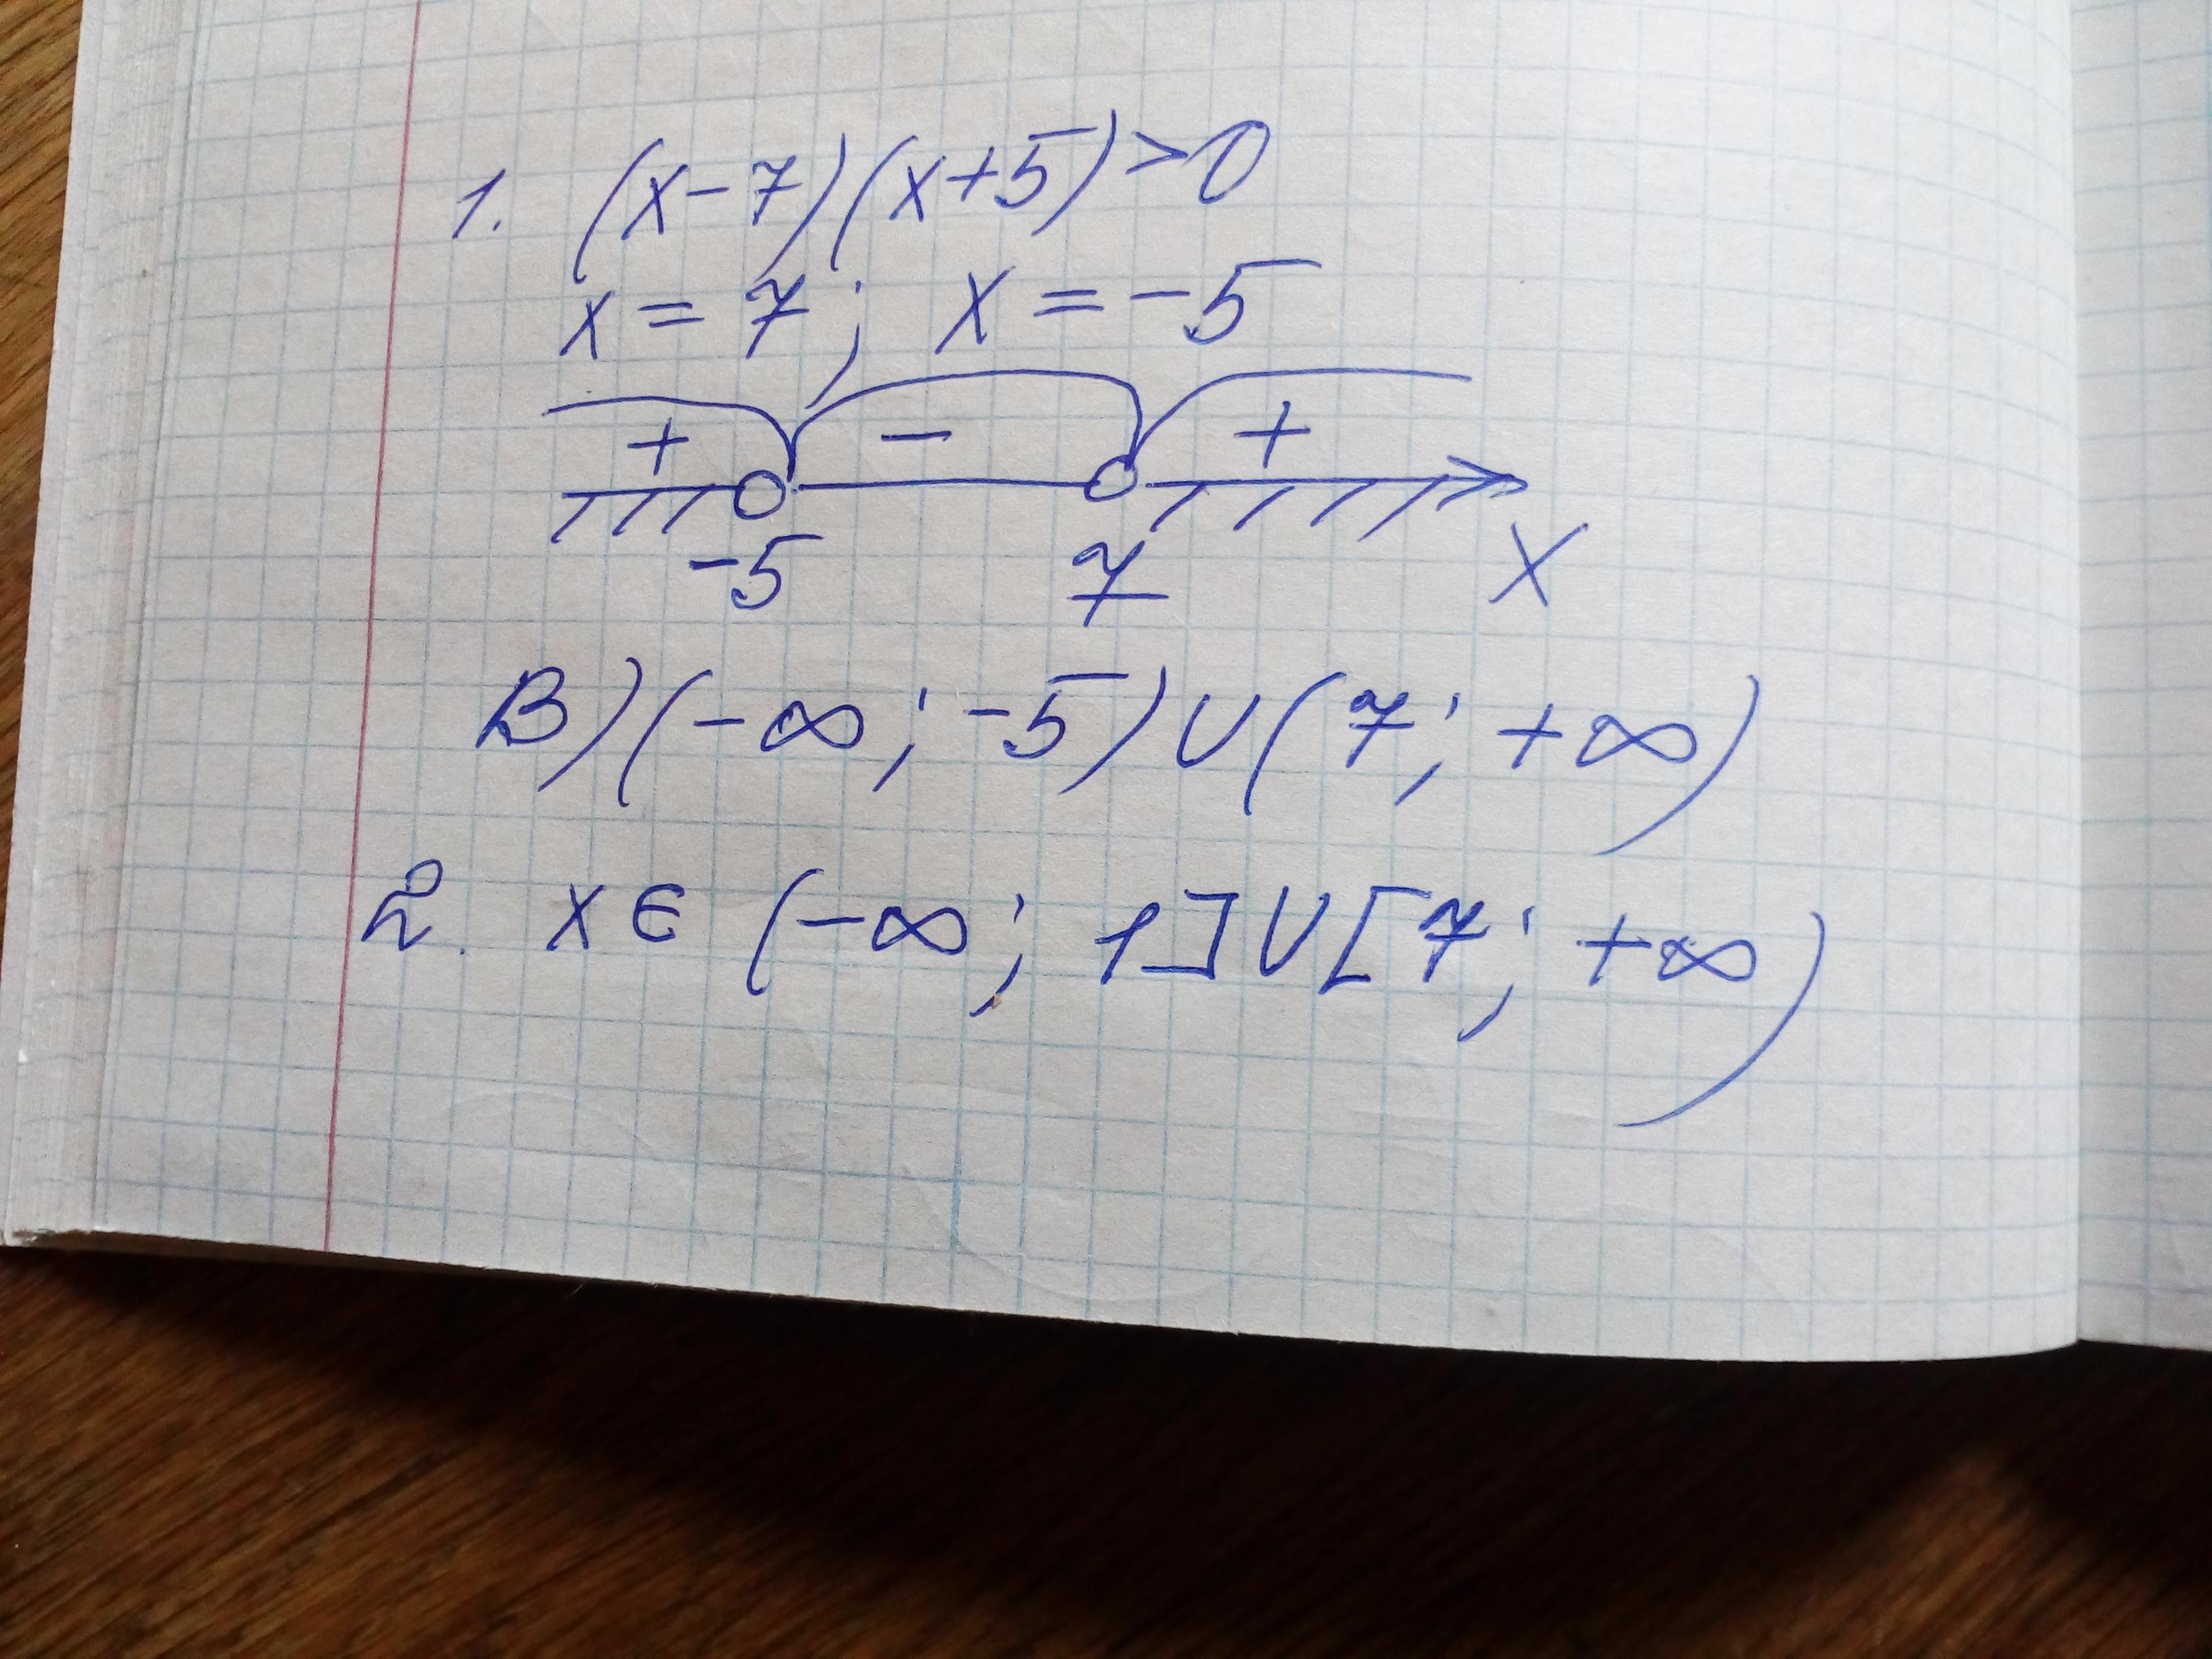 1. (x-7)(x+5)>0
x = 7; x = -5
+ - +
-5 7 x
В) (-∞; -5)∪(7; +∞)
2. x∈(-∞; 1]∪[7; +∞)